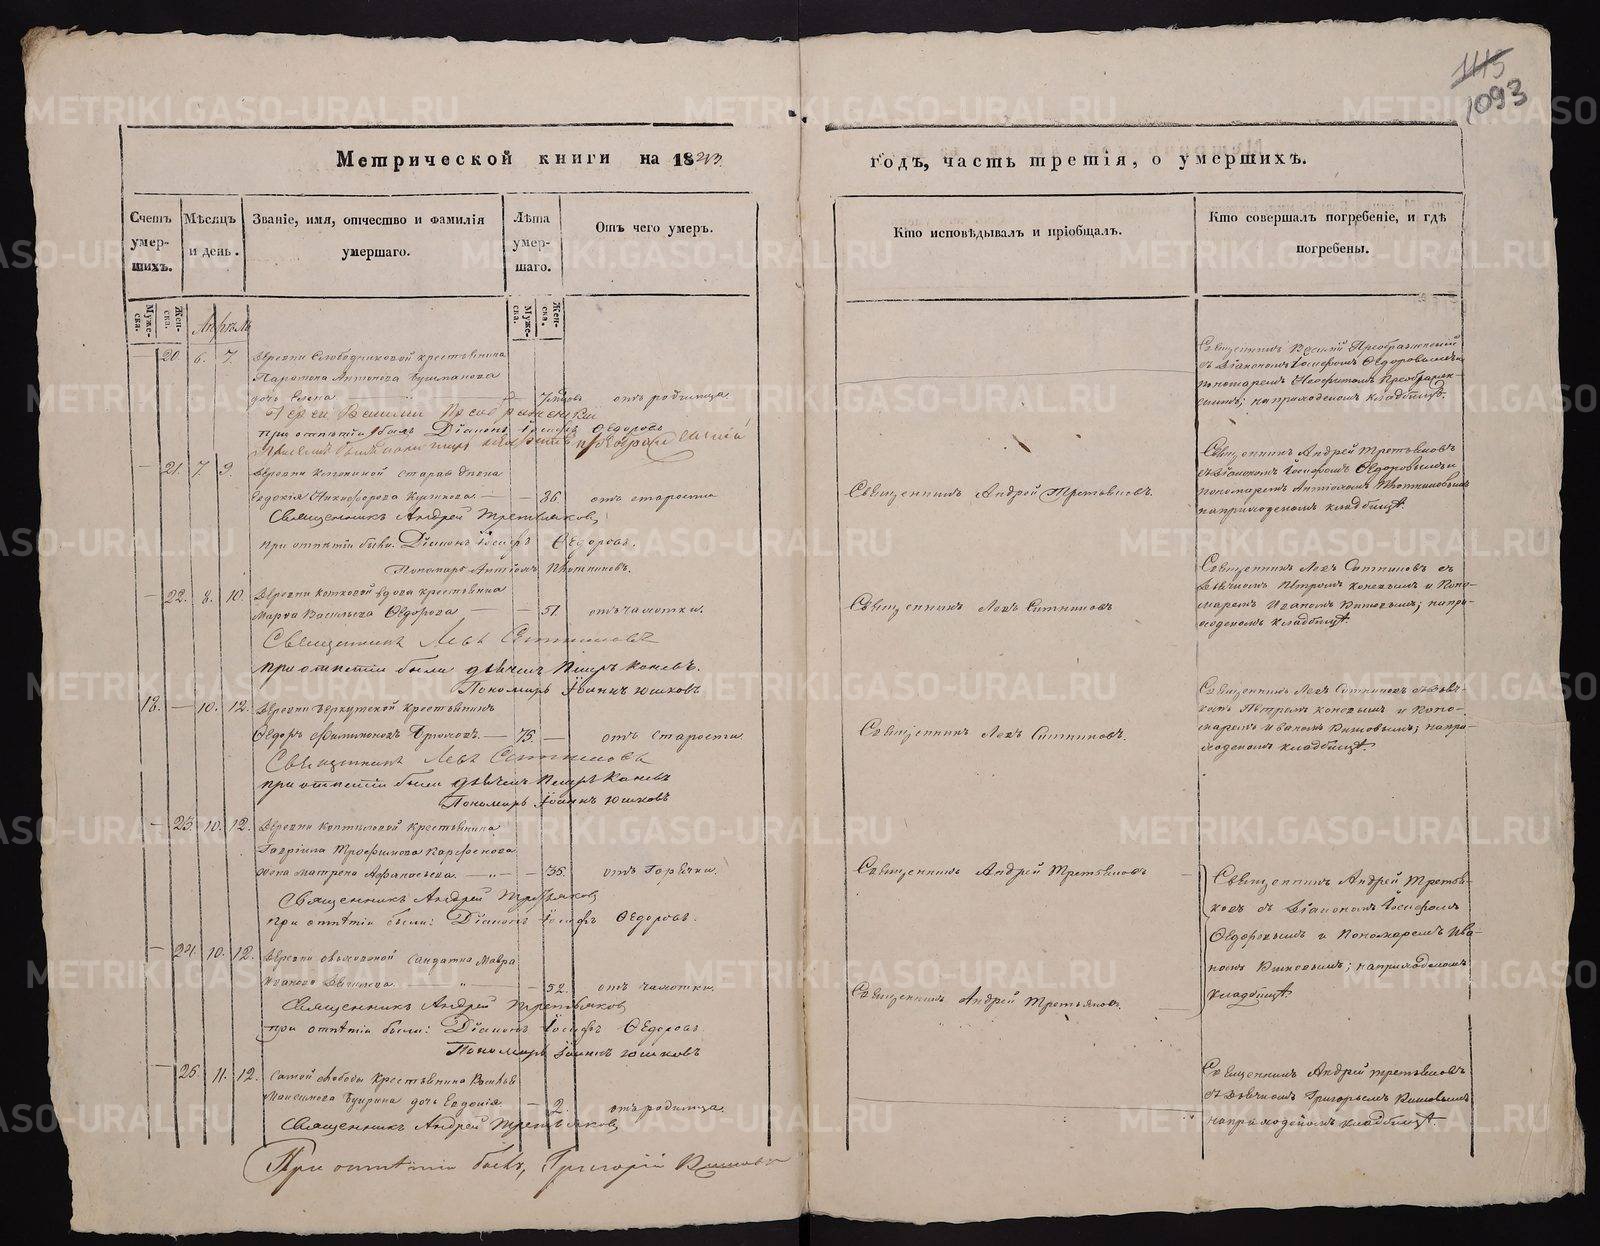 1115
1093
Метрической книги на 1843
годъ, часть третія, о умершихъ.
Счетъ умер-
шихъ.
Мѣсяцъ
и день.
Званіе, имя, отчество и фамилія
умершаго.
Лѣта
умер-
шаго.
Отъ чего умеръ.
Кто исповѣдывалъ и пріобщалъ.
Кто совершалъ погребеніе, и гдѣ
погребены.
Муже-
ска.
Жен-
ска.
Муже-
ска.
Жен-
ска.
Апрѣль
20. 6. 7. Деревни Слободчиковой крестьянина
Антонова
дочь Елена отъ родимца
Іерей Василий Преображенский
при отпѣтіи былъ Діаконъ Іосифъ Ѳедоровъ
Священникъ Василій Преображенскій
съ Діакономъ Іосифомъ Ѳедоровымъ и
пономаремъ Преображен-
скимъ; на приходскомъ кладбищѣ.
— 21. 7. 9. Деревни старая дѣвка
Евдокія Никифорова — — 36 отъ старости
Священникъ Андрей Третьяковъ
при отпѣтіи были: Діаконъ Іосифъ Ѳедоровъ.
Пономарь Плотниковъ.
Священникъ Андрей Третьяковъ.
Священникъ Андрей Третьяковъ
съ Діакономъ Іосифомъ Ѳедоровымъ и
пономаремъ Плотниковымъ
на приходскомъ кладбищѣ.
— 22. 8. 10. Деревни вдова крестьянка
Марѳа Васильева Ѳедорова — — 51. отъ чахотки.
Священникъ Левъ Ситниковъ
при отпѣтіи были дьячекъ Петръ Коневъ.
Пономарь Іоаннъ Юшковъ
Священникъ Левъ Ситниковъ
Священникъ Левъ Ситниковъ съ
Дьячкомъ Петромъ Коневымъ и Поно-
маремъ Иваномъ Юшковымъ; на при-
ходскомъ кладбищѣ.
18. — 10. 12. Деревни крестьянинъ
Ѳедоръ Филимоновъ — 75. — отъ старости
Священникъ Левъ Ситниковъ
при отпѣтіи были дьячекъ Петръ Коневъ
Пономарь Іоаннъ Юшковъ
Священникъ Левъ Ситниковъ.
Священникъ Левъ Ситниковъ съ Дьяч-
комъ Петромъ Коневымъ и Поно-
маремъ Иваномъ Юшковымъ; на при-
ходскомъ кладбищѣ.
— 23. 10. 12. Деревни крестьянина
Гавріила Трофимова
жена Матрена Афанасьева. — „ — — 35. отъ горячки.
Священникъ Андрей Третьяковъ
при отпѣтіи были: Діаконъ Іосифъ Ѳедоровъ.
Священникъ Андрей Третьяковъ
Священникъ Андрей Третья-
ковъ съ Діакономъ Іосифомъ
Ѳедоровымъ и Пономаремъ Ива-
номъ Юшковымъ; на приходскомъ
кладбищѣ.
— 24. 10. 12. Деревни солдатка Мавра
Иванова — 52. отъ чахотки.
Священникъ Андрей Третьяковъ
при отпѣтіи были: Діаконъ Іосифъ Ѳедоровъ.
Пономарь Іоаннъ Юшковъ
Священникъ Андрей Третьяковъ.
— 25. 11. 12. Самой слободы крестьянина
Максимова дочь Евдокія — 2. отъ родимца.
Священникъ Андрей Третьяковъ
При отпѣтіи былъ, Григорій Юшковъ
Священникъ Андрей Третьяковъ
съ Дьячкомъ Григорьемъ Юшковымъ
на приходскомъ кладбищѣ.
METRIKI.GASO-URAL.RU